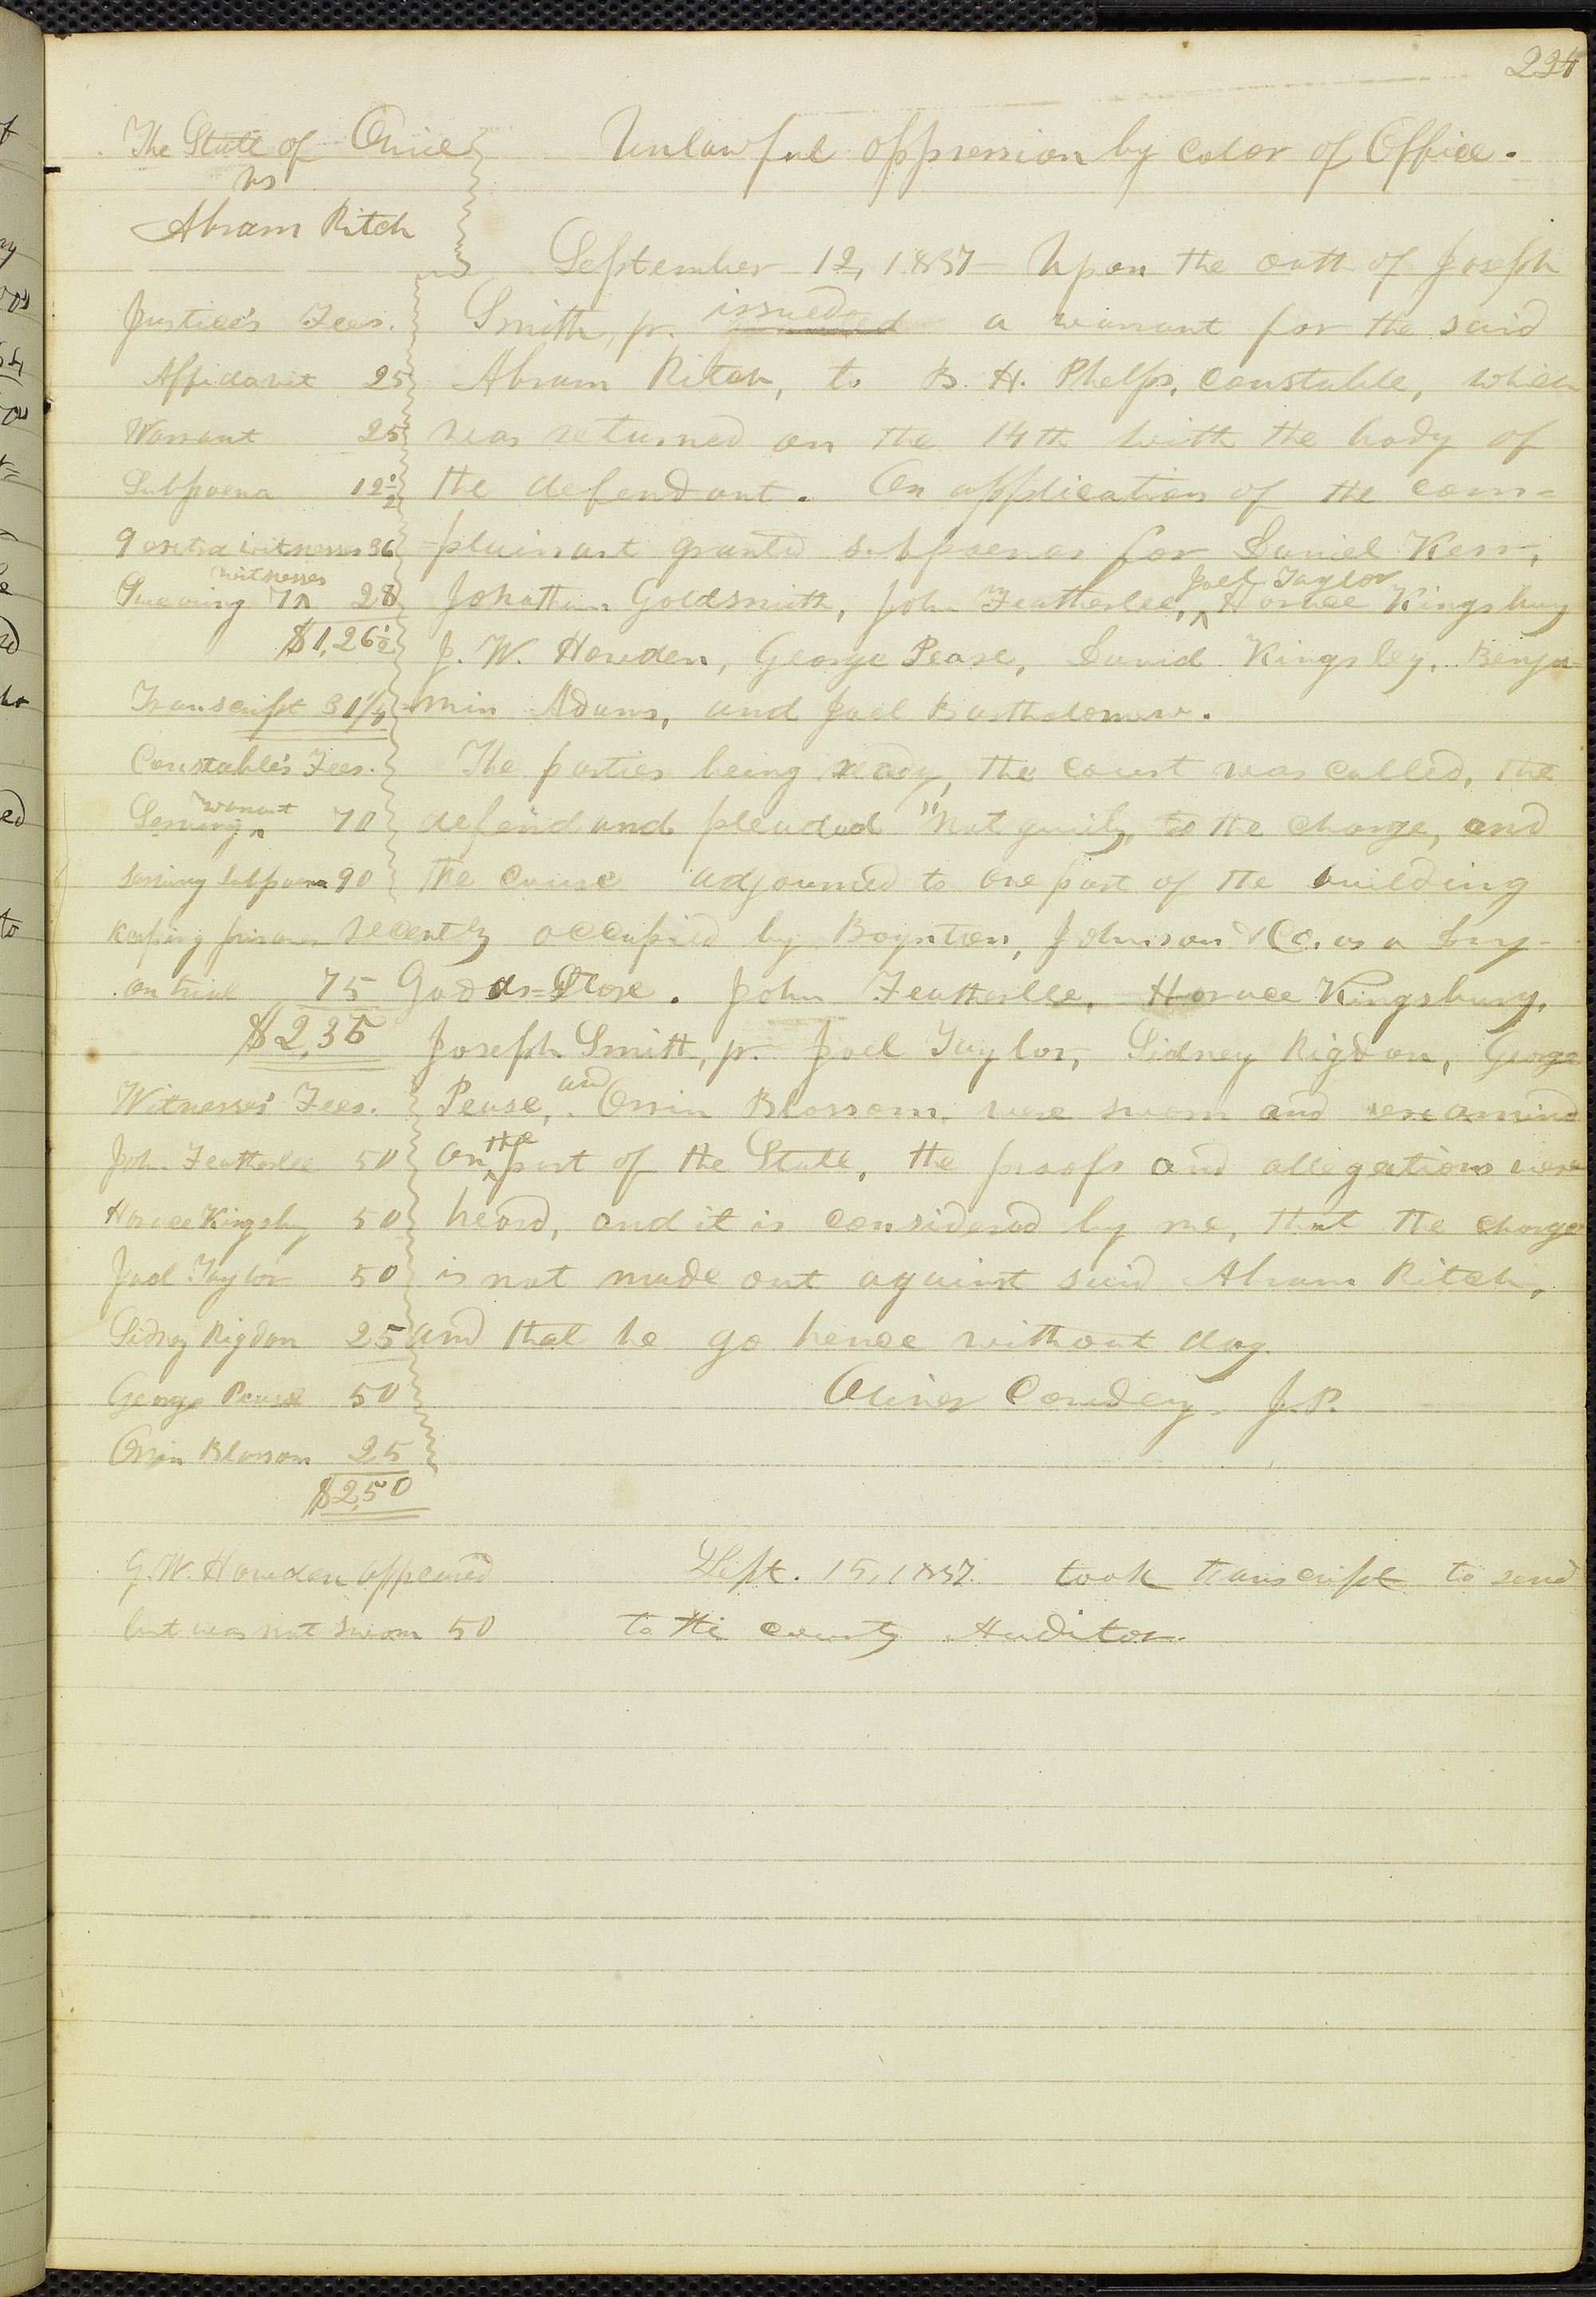 224
The State of Ohio
vs
Abram Ritch
Unlawful oppression by color of Office.
September 12, 1837 Upon the oath of Joseph
Smith, jr. issued granted a warrant for the said
Abram Ritch, to B. H. Phelps, constable, which
was returned on the 14th with the body of
the defendant. On application of the com=
=plainant granted subpoenas for Daniel Kerr,
Jonathan Goldsmith, John W Featherlee, ^ Joel Taylor Horace Kingsbury
J. W. Howden, George Pease, David Kingsley, Benja=
=min Adams, and Joel Bartholomew.
The parties being ready, the court was called, the
defendand pleaded "not guilty, to the charge, and
the cause adjourned to one part of the building
recently occupied by Boynton, Johnson & Co. as a Dry-
Goods=Store. John Featherlee, Horace Kingsbury,
Joseph Smith, jr. Joel Taylor, Sidney Rigdon, George
Pease, and Orrin Blossom, were sworn and examined
on ^ the part of the State, the proofs and allegations were
heard, and it is considered by me, that the charge
is not made out against said Abram Ritch,
and that he go hence without day.
Oliver Cowdery, J.P.
Justice's Fees.
Affidavit 25
Warrant 25
Subpoena 12 1/2
9 extra witnesses 36
Swearing 7 ^ witnesses 28
$1,26 1/2
Transcript 31 1/4
Constable's Fees.
Serving ^ warrant 70
serving subpoena 90
Keeping prisoner
on trial 75
$2,35
Witnesses' Fees.
John Featherlee 50
Horace Kingsbury 50
Joel Taylor 50
Sidney Rigdon 25
George Pease 50
Orrin Blossom 25
$2,50
G. W. Howden appeared
but was not sworn 50
Sept. 15, 1837. took transcript to send
to the county Auditor.